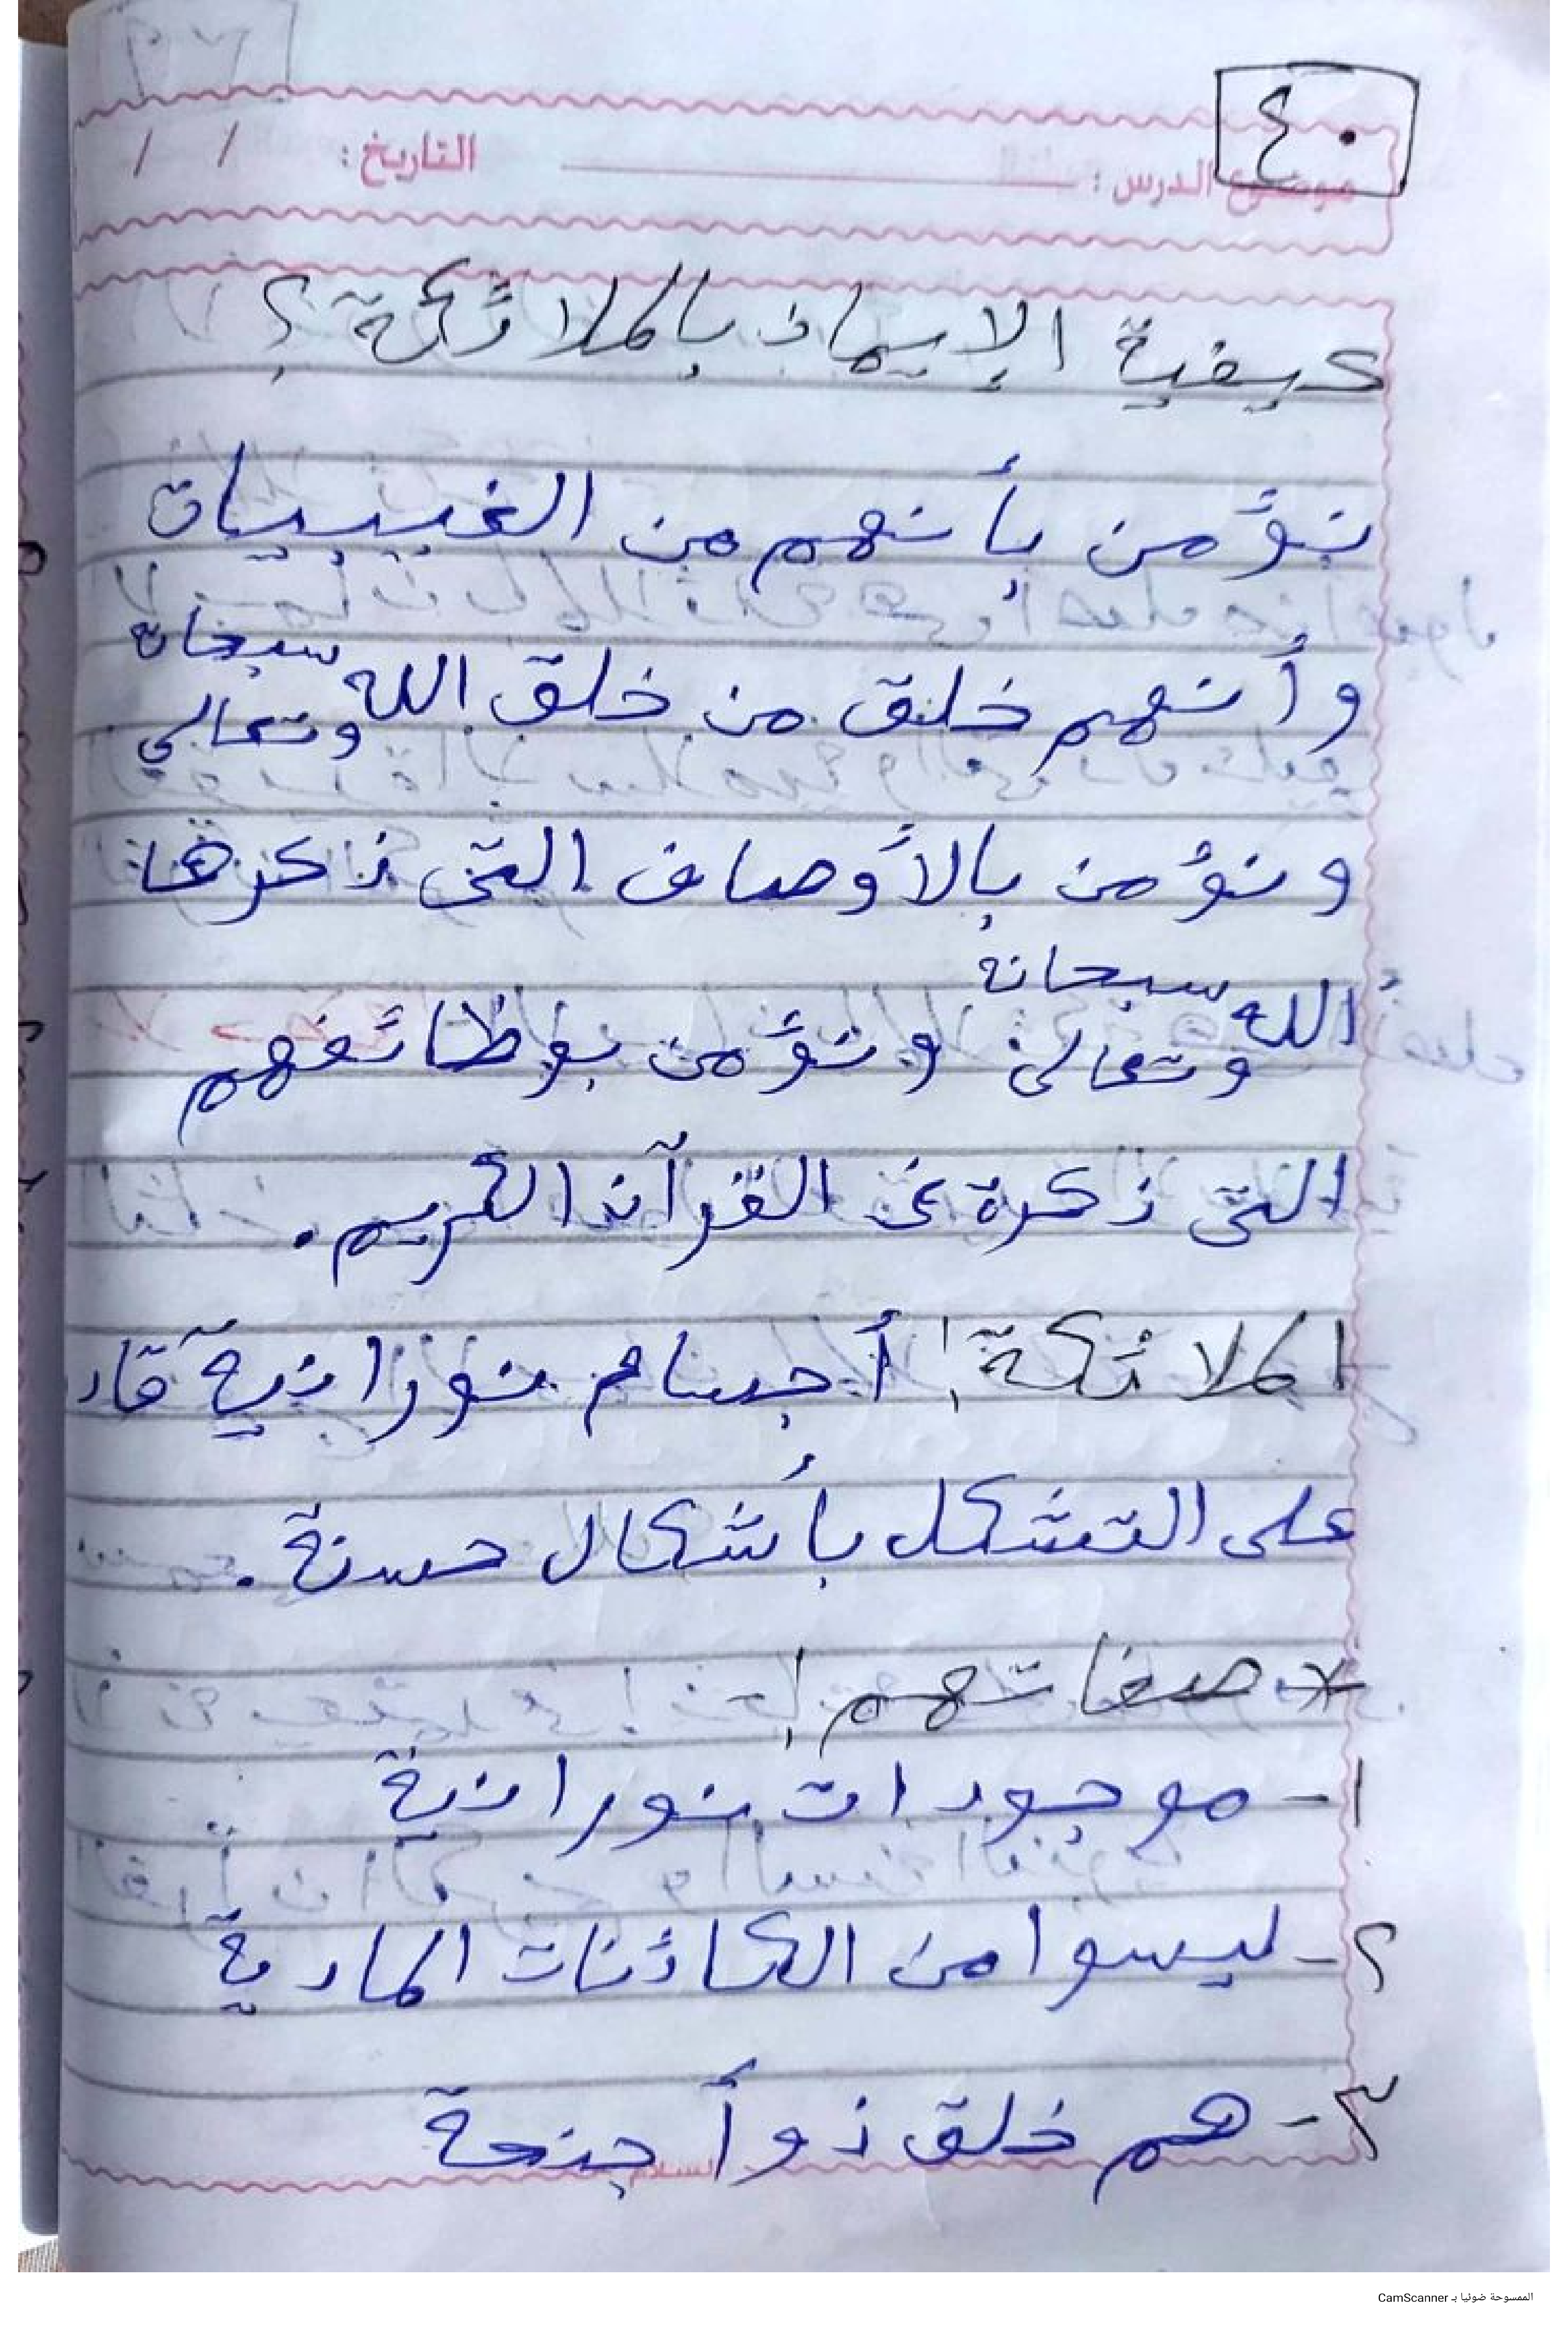 ٤٠
موضوع الدرس : التاريخ : / /
كيفية الإيمان بالملائكة ؟
نؤمن بأنهم من الغيبيات
وأنهم خلق من خلق الله سبحانه وتعالى
ونؤمن بالأوصاف التي ذكرها
الله سبحانه وتعالى ونؤمن بوظائفهم
التي ذكرة في القرآن الكريم .
الملائكة : أجسام نورانية قاد
على التشكل بأشكال حسنة .
* صفاتهم :
١- موجودات نورانية
٢- ليسوا من الكائنات المادية
٣- هم خلق ذو أجنحة
الممسوحة ضوئيا بـ CamScanner